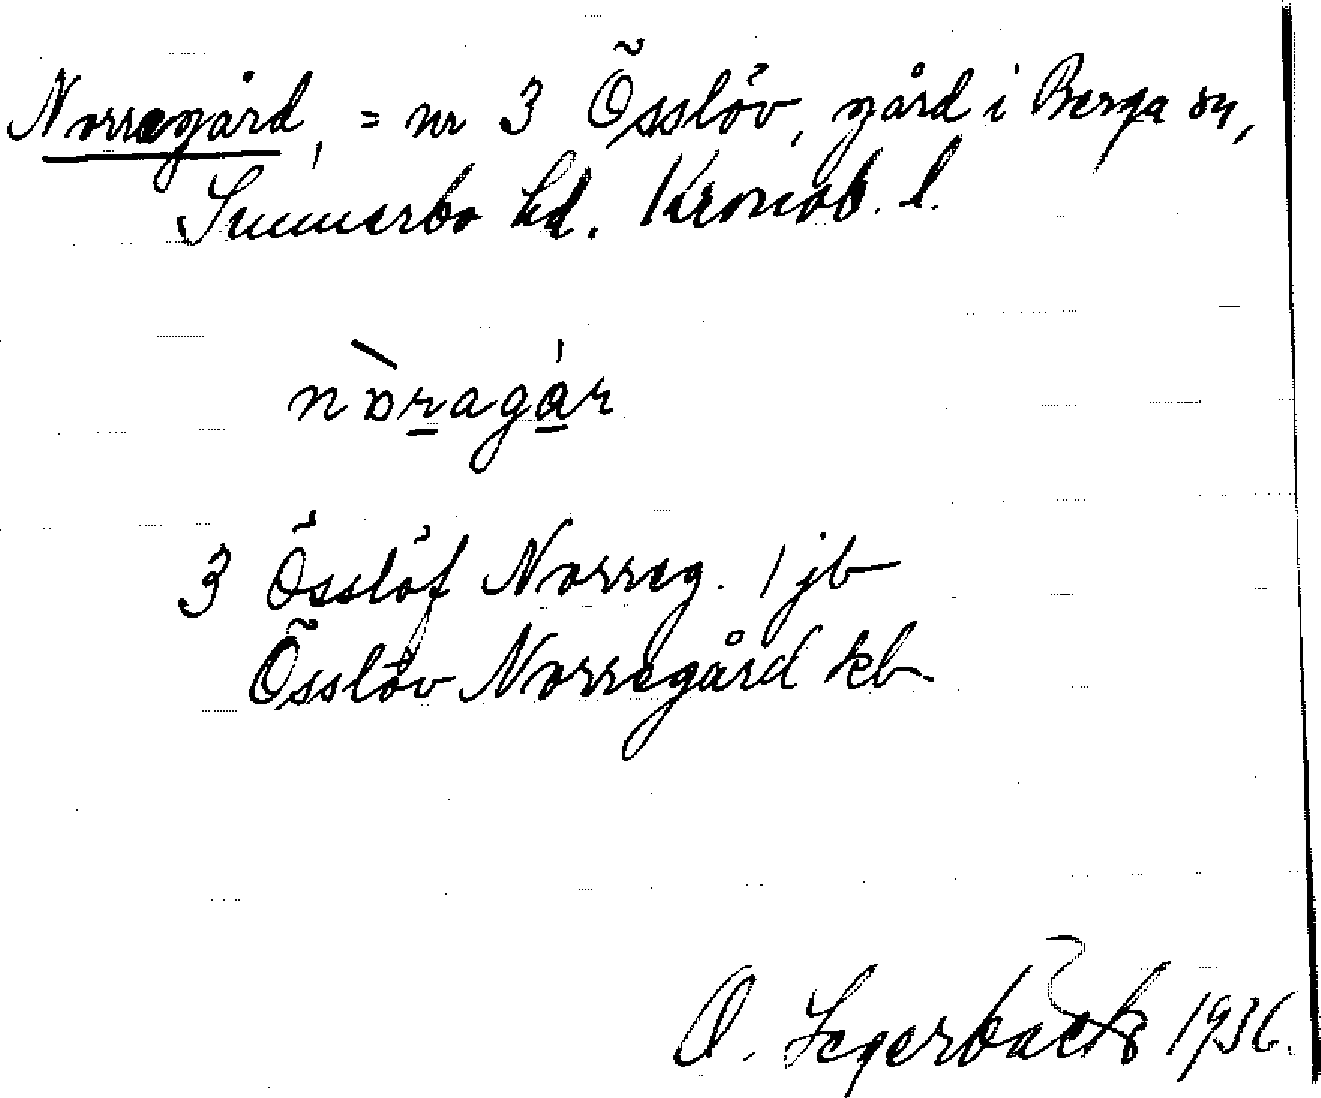 Norregård, = nr 3 Össlöv, gård i Berga sn,
Sunnerbo hd. Kronob. l.
nòragár
3 Össlöf Norreg. 1 jb
Össlöv Norregård kb
O. Segerbäck 1936.